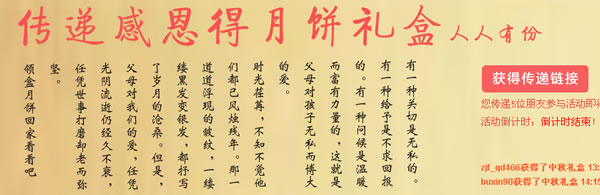 传递感恩得月饼礼盒人人有份
有一种关切是无私的。
有一种给予是不求回报
的。有一种问候是温暖
而富有力量的，这就是
父母对孩子无私而博大
的爱。
时光荏苒，不知不觉他
们都已风烛残年。那一
道道浮现的皱纹，一缕
缕黑发变银发，都抒写
了岁月的沧桑。但是，
父母对我们的爱，任凭
光阴流逝仍经久不衰，
任凭世事打磨却老而弥
坚。
领盒月饼回家看看吧
获得传递链接
您传递5位朋友参与活动即
活动倒计时：倒计时结束！
zjf_qd466获得了中秋礼盒 13:
buxin90获得了中秋礼盒 14:1